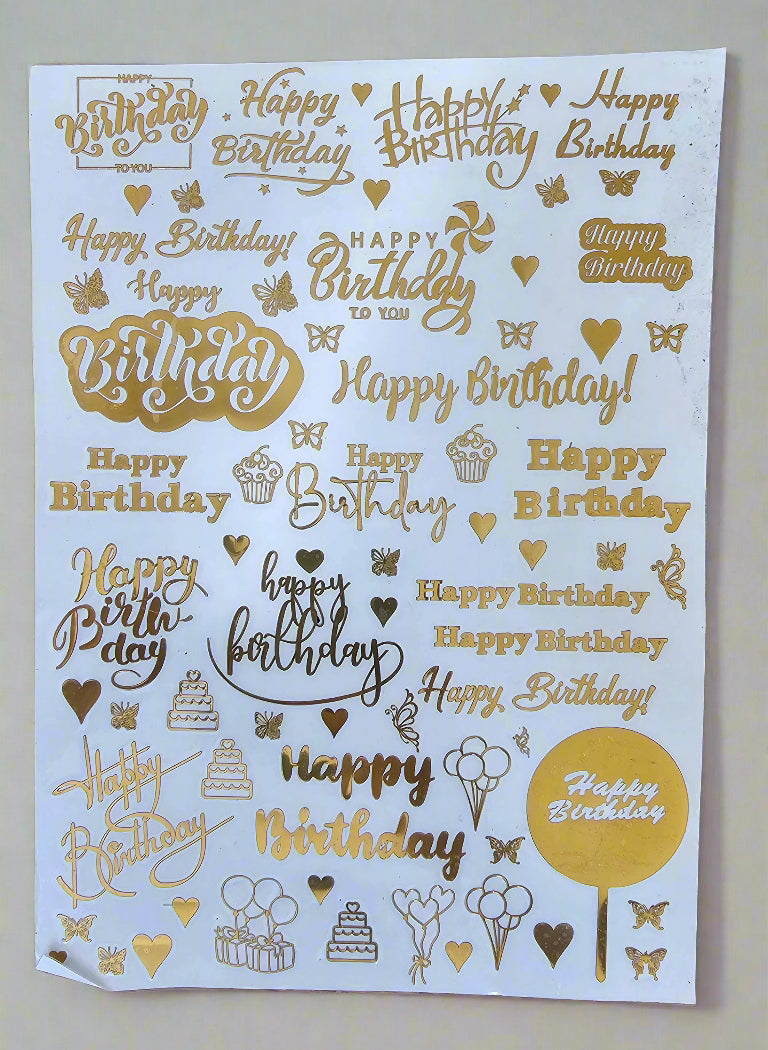 HAPPY
Birthday
TO YOU
Happy
Birthday
Happy
Birthday
Happy
Birthday
Happy Birthday!
HAPPY
Birthday
TO YOU
Happy
Birthday
Happy
Birthday
Happy Birthday!
Happy
Birthday
Happy
Birthday
Happy
Birthday
Happy
Birth
day
happy
birthday
Happy Birthday
Happy Birthday
Happy Birthday!
Happy
Birthday
Happy
Birthday
Happy
Birthday